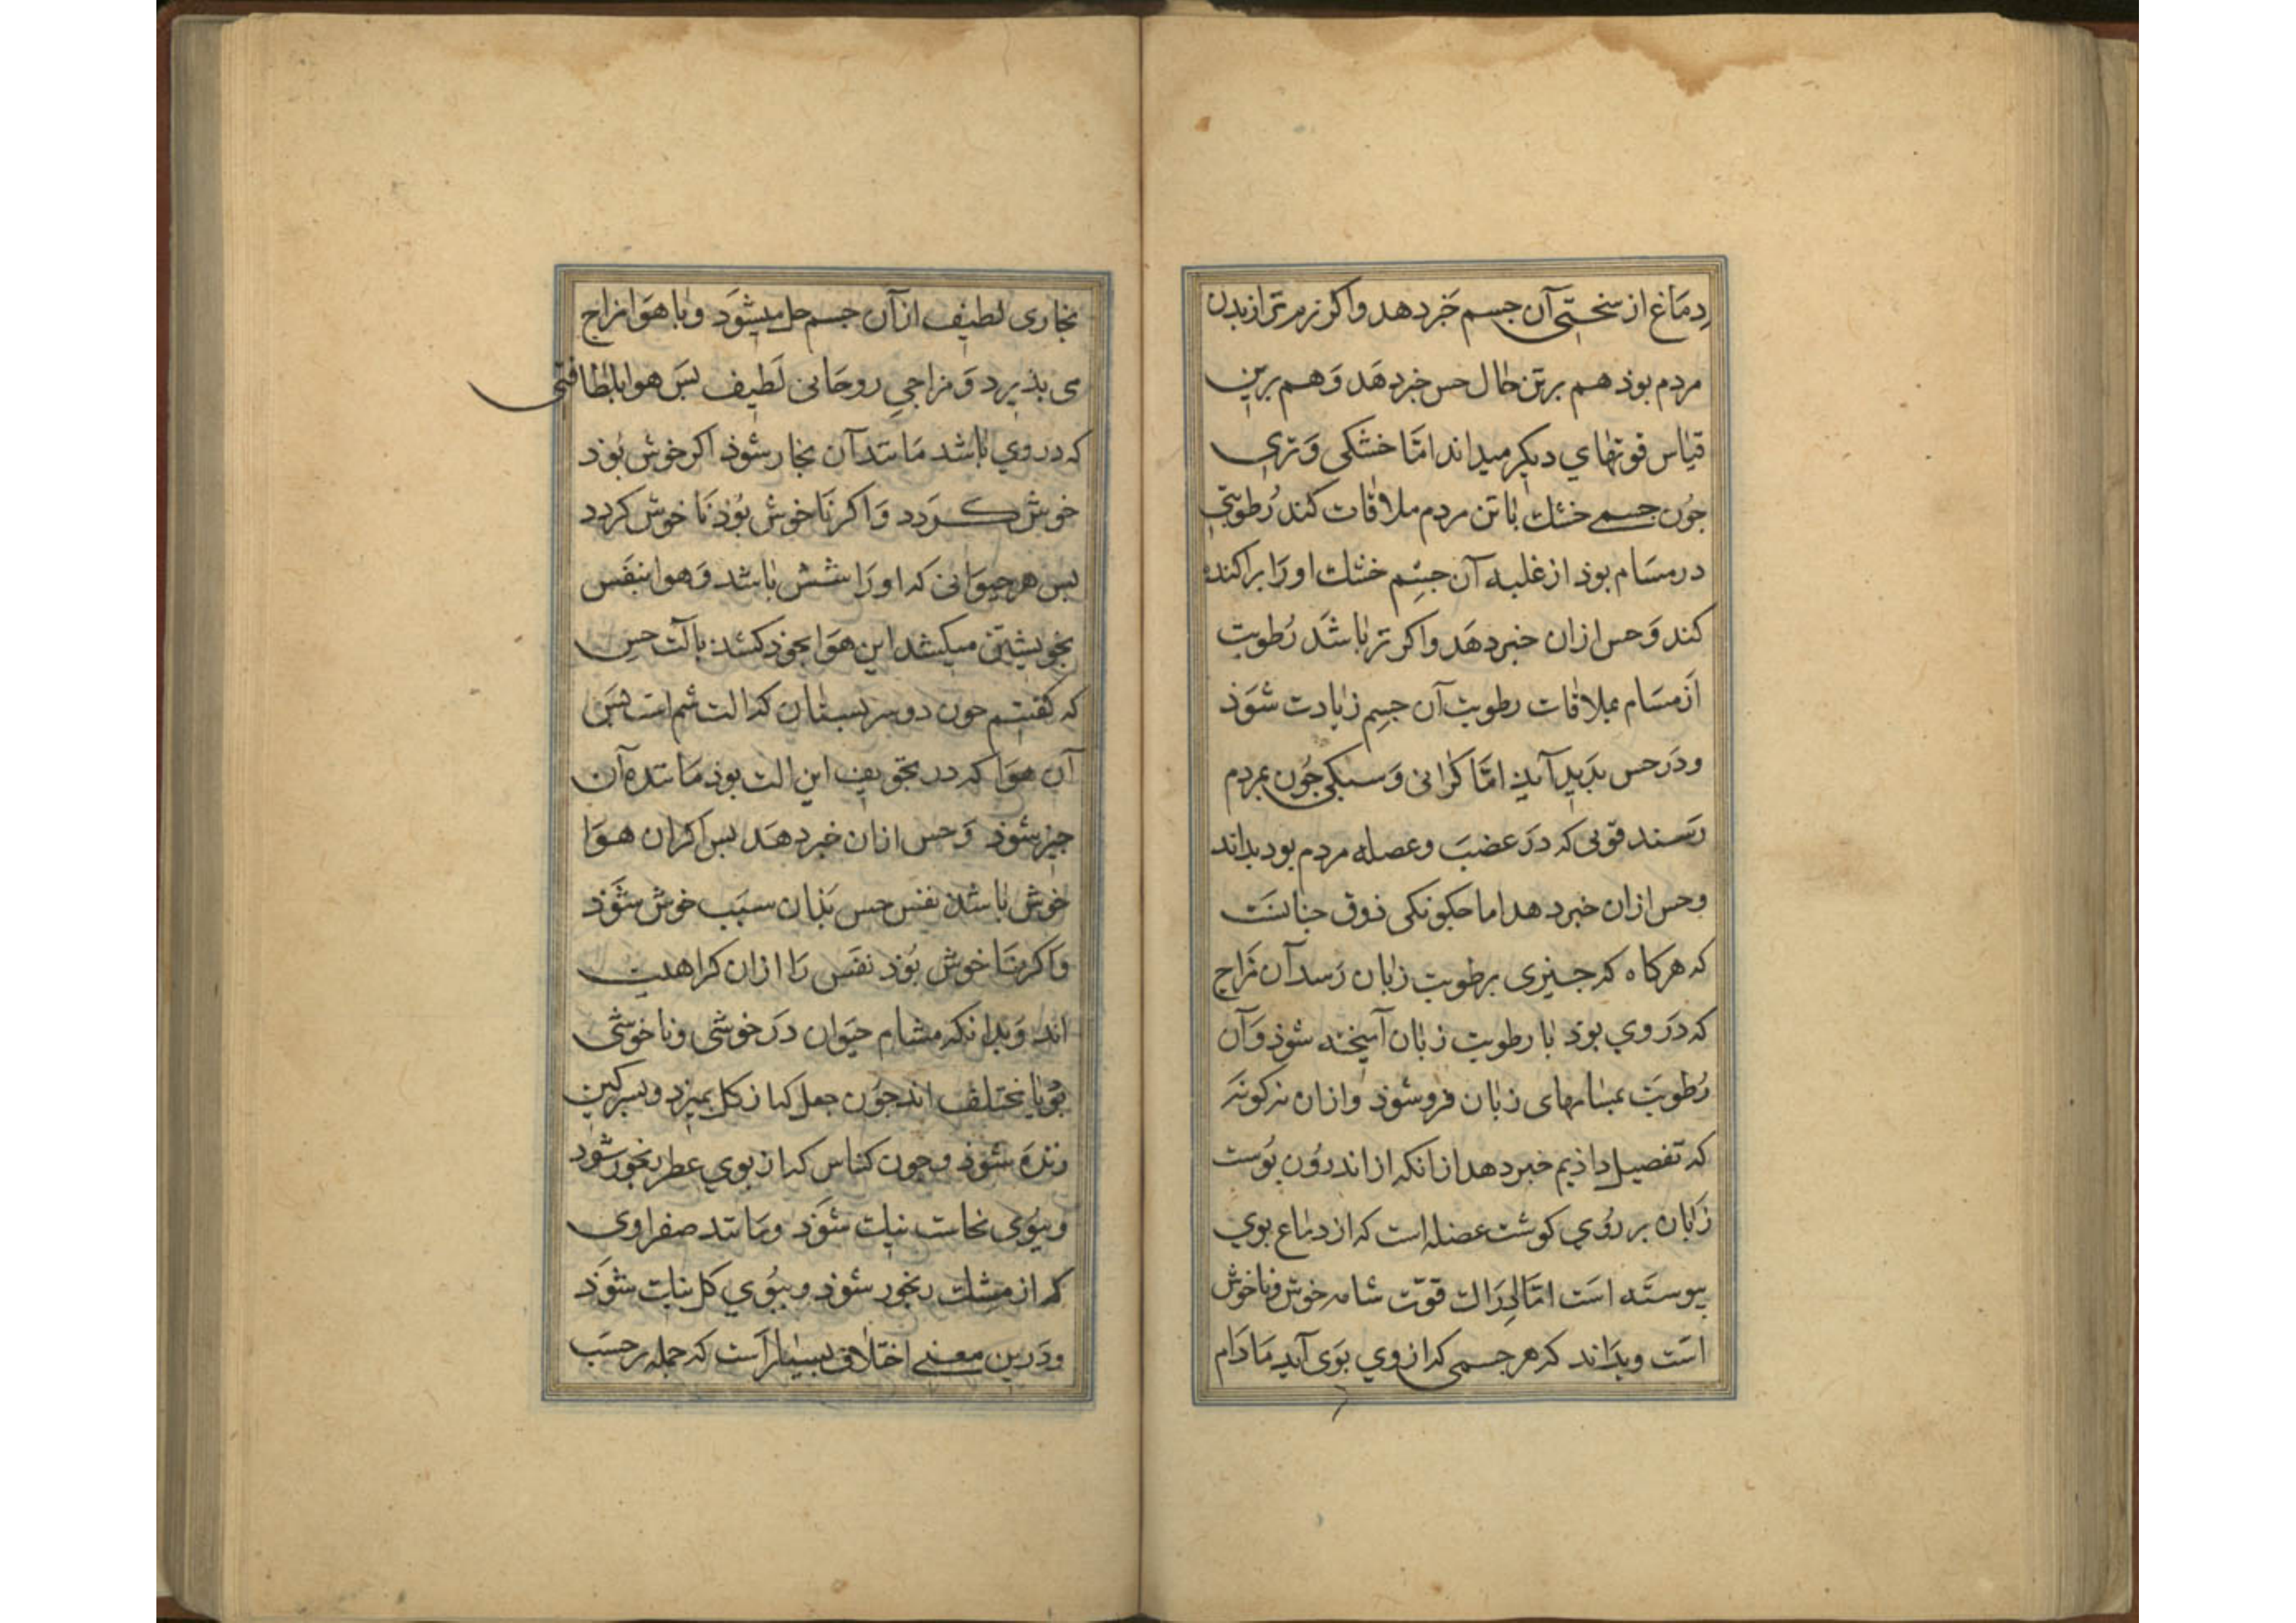 دماغ از سختی آن جسم خبر دهد واکر نرم تر از بدن
مردم بوذ هم برتن حال حس خبر دهد وهم برین
قیاس قوتهای دیکر میداند امّا خشکی وتری
جون جسمی خشک با تن مردم ملاقات کند رطوبتی
در مسام بوذ از غلبه آن جسم خشک اورا براکنده
کند وحس ازان خبر دهد واکر تر باشد رطوبت
از مسام بملاقات رطوبت آن جسم زیادت شوذ
ودر حس بدید آید امّا کرانی وسبکی جون بمردم
رسند قوتی که در عضب وعصله مردم بود بداند
وحس ازان خبر دهد اما جکونکی ذوق جنانست
که هرکاه که جیزی برطوبت زبان رسد آن مزاج
که در وی بوذ با رطوبت زبان آمیخته شوذ وآن
رطوبت بمسامهای زبان فرو شوذ وازان نه کونه
که تفصیل داذیم خبر دهد ازانکه از اندرون بوست
زبان بر روی کوشت عضله است که از دماغ بوی
بیوسته است امّا ادراک قوّت شامه خوش وناخوش
است وبداند که هر جسمی که از وی بوی آید مادام
بخاری لطیف از آن جسم حل میشود وبا هوا مزاج
می بذیرد ومزاجی روحانی لطیف بس هوا بلطافتی
که در وی باشد مانند آن بخار شوذ اکر خوش بوذ
خوش کردد واکر ناخوش بوذ ناخوش کردد
بس هر حیوانی که اورا شش باشد وهوا بنفس
بخویشتن میکشد این هوا بخوذ کشد بآلت حس
که کفتیم جون دو سر بستان که الت شم است بس
آن هوا که در تجویف این الت بوذ مانند آن
جیز شوذ وحس ازان خبر دهد بس اکر ان هوا
خوش باشد نفس حس بذان سبب خوش شوذ
واکر ناخوش بوذ نفس را ازان کراهیت
اند وبدانکه مشام حیوان در خوشی وناخوشی
بویها مختلف اند جون جعل که از کل بمیرد وبسرکین
زنده شوذ وجون کناس که از بوی عطر رنجور شود
وببوی نجاست نیک شوذ ومانند صفراوی
که از مشک رنجور شوذ وببوی کل نیک شوذ
ودرین معنی اختلاف بسیار است که جمله برحسب